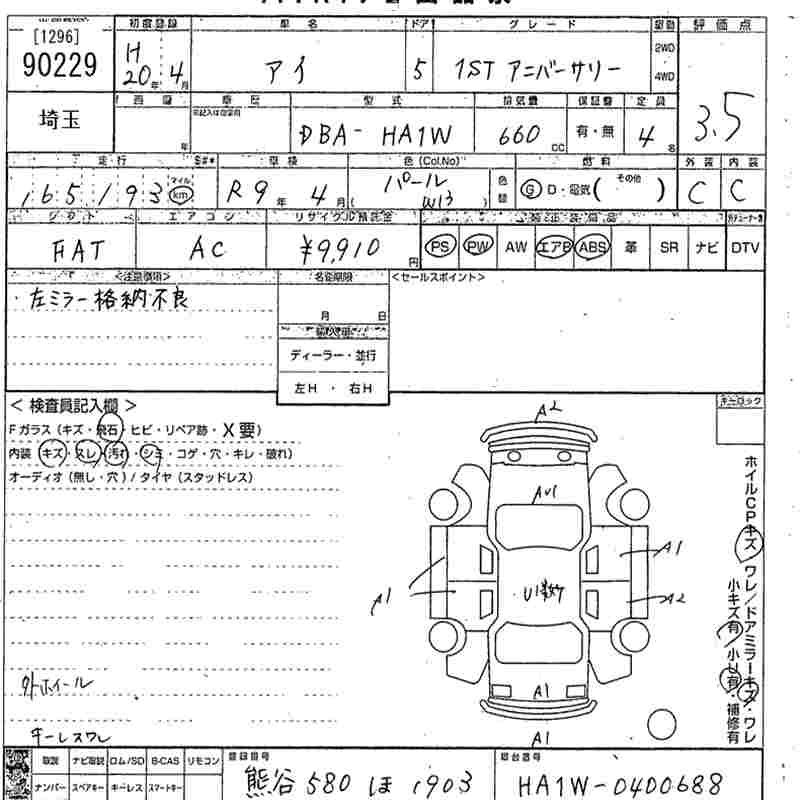 [1296]
90229
埼玉
初度登録
H
20年 4月
車名
アイ
ドア
5
グレード
1ST アニバーサリー
駆動
2WD
4WD
評価点
3.5
車歴
型式
DBA-HA1W
排気量
660
cc
保証書
有・無
定員
4名
走行
165193
マイル
km
車検
R9年 4月
色(Col.No)
パール
W13
色替
燃料
G D・電気( その他 )
外装
C
内装
C
シフト
FAT
エアコン
AC
リサイクル預託金
¥9,910円
PS PW AW エアB ABS 革 SR ナビ DTV
<注意事項>
・左ミラー格納不良
名変期限
月 日
輸入車
ディーラー・並行
左H ・ 右H
<セールスポイント>
<検査員記入欄>
Fガラス (キズ・飛石・ヒビ・リペア跡・X要)
内装 (キズ・スレ・汚れ・シミ・コゲ・穴・キレ・破れ)
オーディオ (無し・穴) / タイヤ (スタッドレス)
外ホイール
キーレスワレ
キーロック
A2
AU1
A1
A1
U1数ケ
A2
A1
A1
ホイルCPキズ ワレ/ドアミラーキズ・ワレ
小キズ有 小U有・補修有
取説 ナビ取説 ロム/SD B-CAS リモコン
ナンバー スペアキー キーレス スマートキー
登録番号
熊谷 580 ほ 1903
車台番号
HA1W-0400688